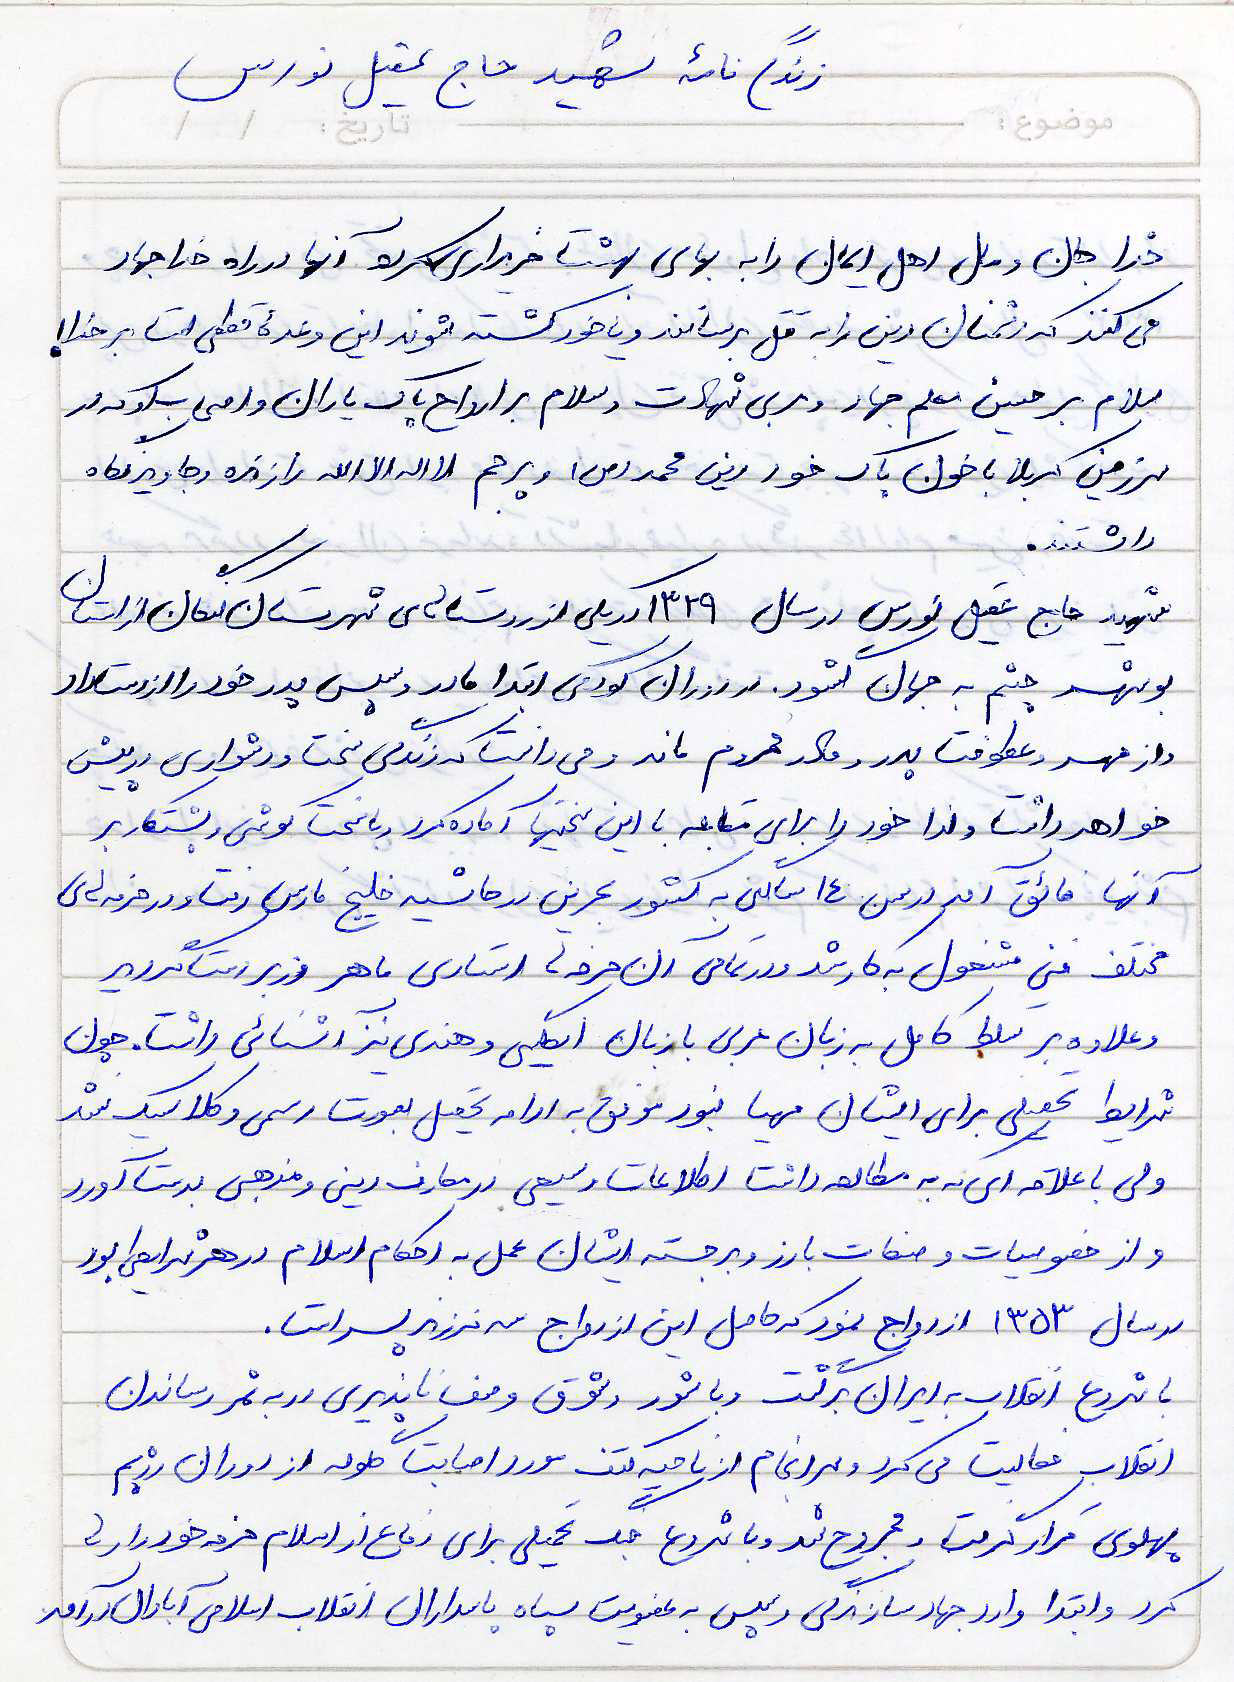 زندگی نامهٔ شهید حاج عقیل نورس
موضوع: تاریخ: / /
خدا جان و مال اهل ایمان را به بهای بهشت خریداری کرده آنها در راه خدا جهاد
می کنند که دشمنان دین را به قتل برسانند و یا خود کشته شوند این وعدهٔ قطعی است بر خدا!
سلام بر حسین معلم جهاد و مربی شهادت و سلام بر ارواح پاک یاران و اصحاب او که در
سرزمین کربلا با خون پاک خود دین محمد (ص) و پرچم لا اله الا الله را زنده و جاوید نگاه
داشتند.
شهید حاج عقیل نورس در سال ۱۳۲۹ در یکی از روستاهای شهرستان کنگان از استان
بوشهر چشم به جهان گشود. در دوران کودکی ابتدا مادر و سپس پدر خود را از دست داد
و از مهر و عطوفت پدر و مادر محروم ماند و می دانست که زندگی سخت و دشواری در پیش
خواهد داشت ولذا خود را برای مقابله با این سختیها آماده کرد و با سخت کوشی و پشتکار بر
آنها فائق آمد در سن ۱٤ سالگی به کشور بحرین در حاشیه خلیج فارس رفت و در حرفه های
مختلف فنی مشغول به کار شد و در تمامی آن حرفه ها استادی ماهر و زبردست گردید
و علاوه بر تسلط کامل به زبان عربی با زبان انگلیسی و هندی نیز آشنائی داشت. چون
شرایط تحصیلی برای ایشان مهیا نبود موفق به ادامه تحصیل بصورت رسمی و کلاسیک نشد
ولی با علاقه ای که به مطالعه داشت اطلاعات وسیعی در معارف دینی و مذهبی بدست آورد
و از خصوصیات و صفات بارز و برجسته ایشان عمل به احکام اسلام در هر شرایطی بود
در سال ۱۳۵۳ ازدواج نمود که حاصل این ازدواج سه فرزند پسر است.
با شروع انقلاب به ایران برگشت و با شور و شوق وصف ناپذیری در به ثمر رساندن
انقلاب فعالیت می کرد و سرانجام از ناحیه کتف مورد اصابت گلوله از دوران رژیم
پهلوی قرار گرفت و مجروح شد و با شروع جنگ تحمیلی برای دفاع از اسلام حرفه خود را رها
کرد و ابتدا وارد جهاد سازندگی و سپس به عضویت سپاه پاسداران انقلاب اسلامی آبادان درآمد